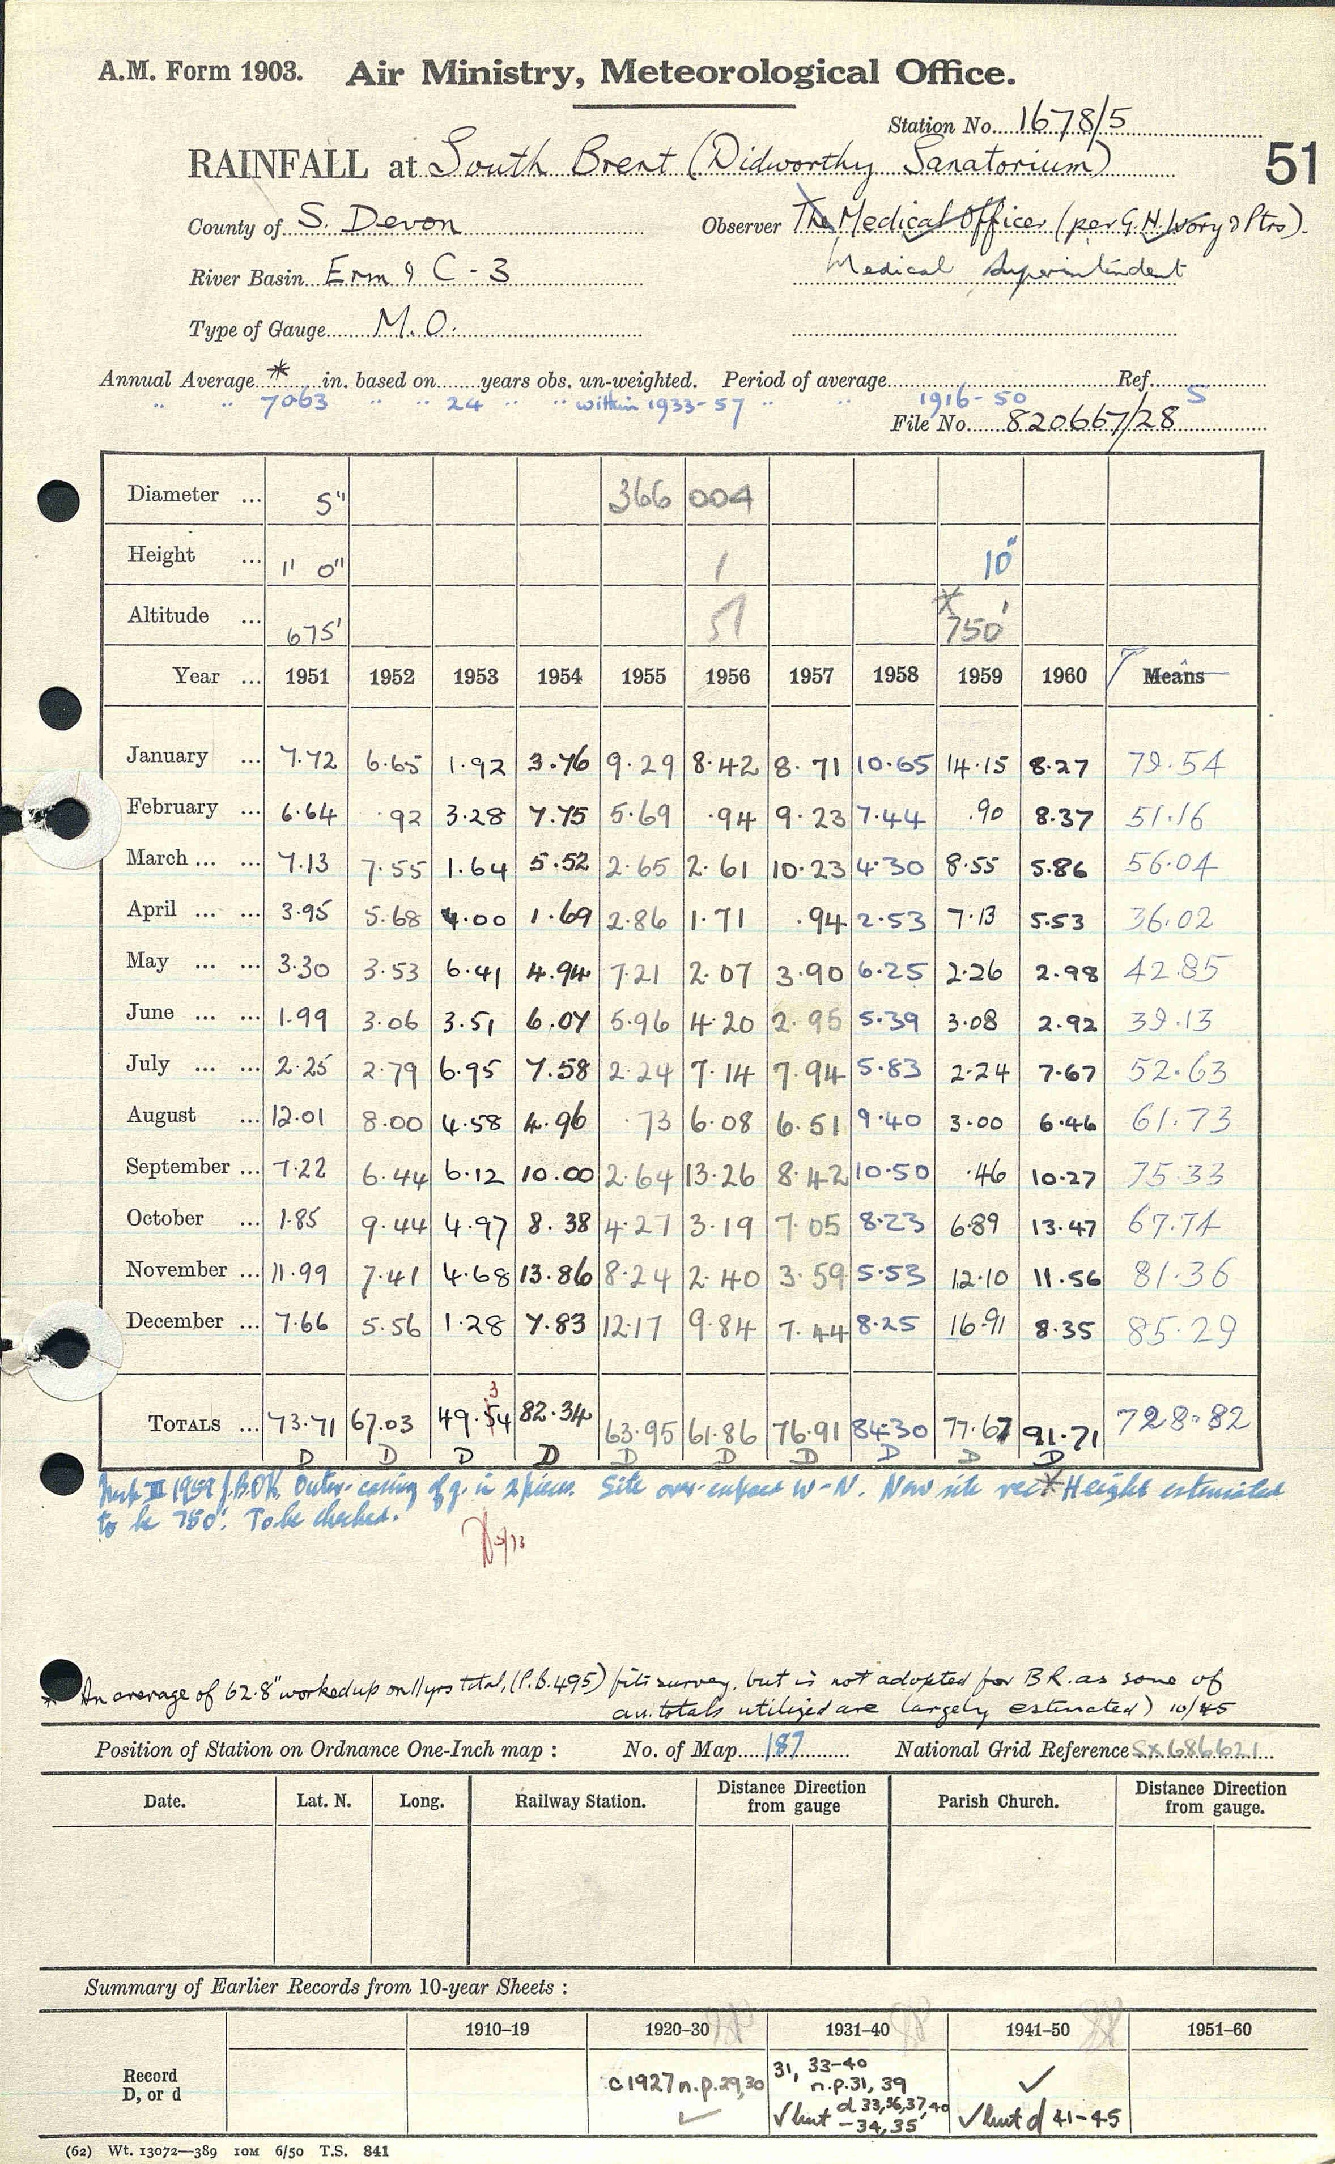 A.M. Form 1903. Air Ministry, Meteorological Office.
Station No. 1678/5
RAINFALL at South Brent (Didworthy Sanatorium) 51
County of S. Devon Observer The Medical Officer (per G.H. Ivory & Ptrs)
River Basin Erm & C-3 Medical Superintendent
Type of Gauge M.O.
Annual Average * in. based on years obs. un-weighted. Period of average Ref.
" " 7063 " " 24 " " within 1933-57 " " 1916-50 5
File No. 820667/28
Diameter ... 5" 366 004
Height ... 1' 0" 1 10"
Altitude ... 675' 51 * 750'
Year ... 1951 1952 1953 1954 1955 1956 1957 1958 1959 1960 T Means
January ... 7.72 6.65 1.92 3.76 9.29 8.42 8.71 10.65 14.15 8.27 79.54
February ... 6.64 .92 3.28 7.75 5.69 .94 9.23 7.44 .90 8.37 51.16
March ... ... 7.13 7.55 1.64 5.52 2.65 2.61 10.23 4.30 8.55 5.86 56.04
April ... ... 3.95 5.68 4.00 1.69 2.86 1.71 .94 2.53 7.13 5.53 36.02
May ... ... 3.30 3.53 6.41 4.94 7.21 2.07 3.90 6.25 2.26 2.98 42.85
June ... ... 1.99 3.06 3.51 6.07 5.96 4.20 2.95 5.39 3.08 2.92 39.13
July ... ... 2.25 2.79 6.95 7.58 2.24 7.14 7.94 5.83 2.24 7.67 52.63
August ... 12.01 8.00 4.58 4.96 .73 6.08 6.51 9.40 3.00 6.46 61.73
September ... 7.22 6.44 6.12 10.00 2.64 13.26 8.42 10.50 .46 10.27 75.33
October ... 1.85 9.44 4.97 8.38 4.27 3.19 7.05 8.23 6.89 13.47 67.74
November ... 11.99 7.41 4.68 13.86 8.24 2.40 3.59 5.53 12.10 11.56 81.36
December ... 7.66 5.56 1.28 7.83 12.17 9.84 7.44 8.25 16.91 8.35 85.29
3
TOTALS ... 73.71 67.03 49.54 82.34 63.95 61.86 76.91 84.30 77.67 91.71 728.82
D D D D D D D D D D
Insp III 1959 Outer-casing of g. in 2 pieces. Site over-exposed W-N. New site rec * Height estimated
to be 750'. To be checked.
* An average of 62.8" worked up on 11 yrs total, (P.B. 495) fits survey, but is not adopted for B.R. as some of
an. totals utilized are largely estimated) 10/45
Position of Station on Ordnance One-Inch map : No. of Map 187 National Grid Reference SX686621
Date. Lat. N. Long. Railway Station. Distance Direction from gauge Parish Church. Distance Direction from gauge.
Summary of Earlier Records from 10-year Sheets :
1910–19 1920–30 1931–40 1941–50 1951–60
Record D, or d
c 1927 n.p. 29,30 ✓
31, 33-40 n.p. 31, 39
✓ but d 33,36,37,40 -34,35
✓
✓ but d 41-45
(62) Wt. 13072—389 10M 6/50 T.S. 841